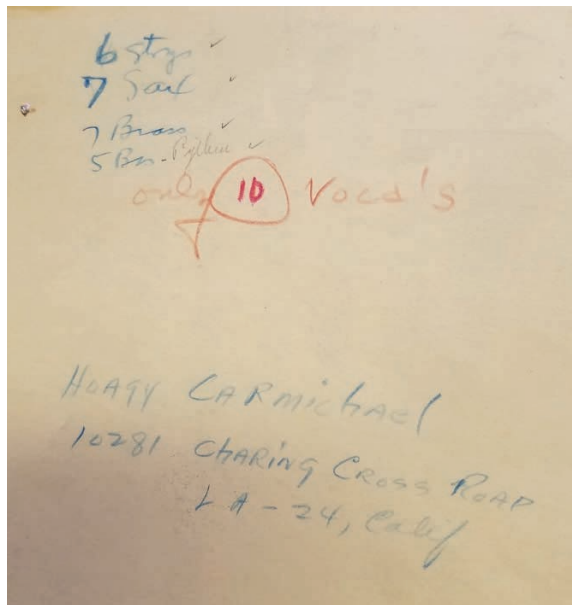 6 Strgs ✓
7 Sax ✓
7 Brass ✓
5 Bs - Rythm ✓
only 10 Vocal's
HOAGY CARMICHAEL
10281 CHARING CROSS ROAD
LA - 24, Calif